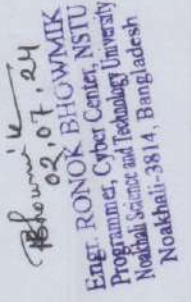 Bhowmik
02.07.24
Engr. RONOK BHOWMIK
Programmer, Cyber Center, NSTU
Noakhali Science and Technology University
Noakhali-3814, Bangladesh